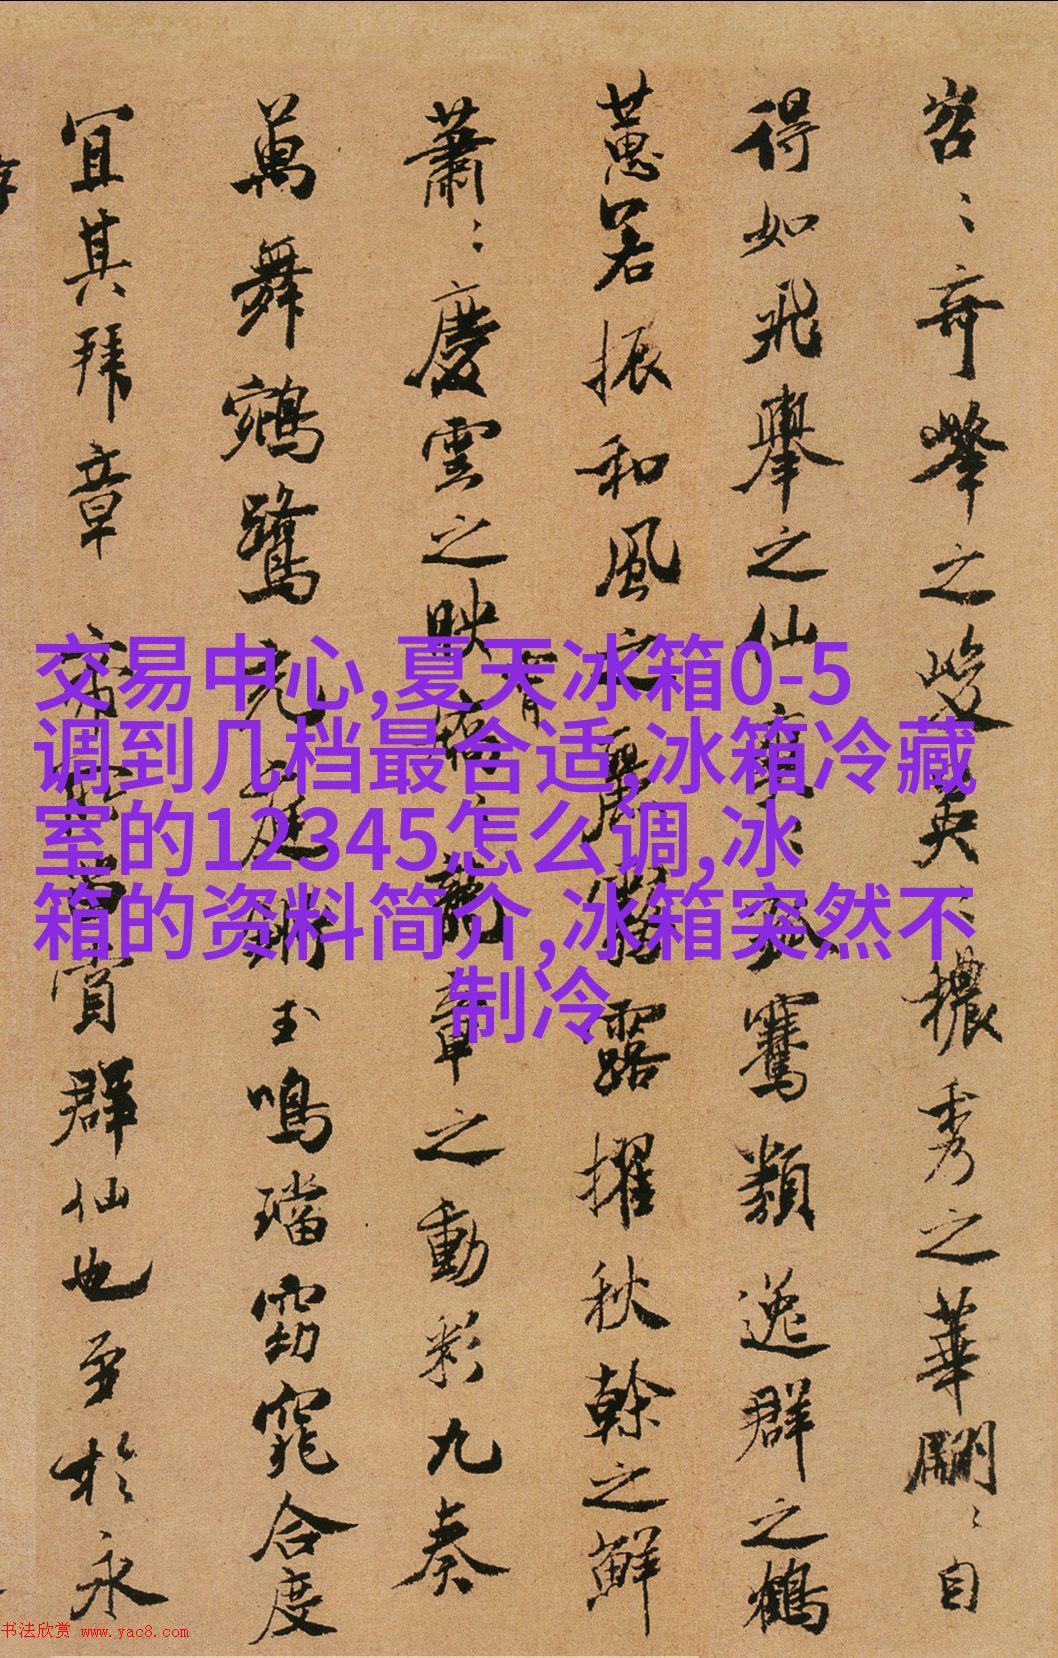 岧〻奇峰之峻英〻穠秀之華翩〻自
得如飛舉之仙
騫類逸群之鶴
蕙若振和風之麗霧露擢秋幹之鮮
蕭〻慶雲之映
龍章之動彩九奏
萬舞鵷鷺充庭鏘玉鳴璫窈窕合度
宜其拜章
賞群仙也至於永
交易中心,夏天冰箱0-5
调到几档最合适,冰箱冷藏
室的12345怎么调,冰
箱的资料简介,冰箱突然不
制冷
书法欣赏 www.yac8.com